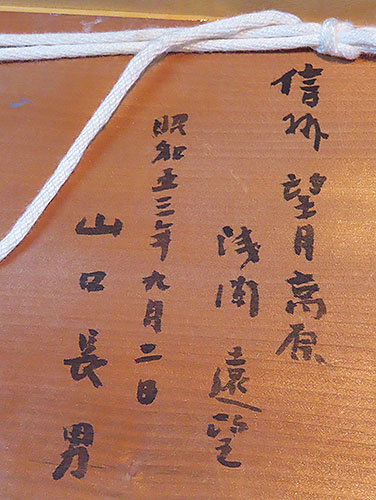 信州 望月高原
浅間 遠望
昭和五三年 九月二日
山口 長男